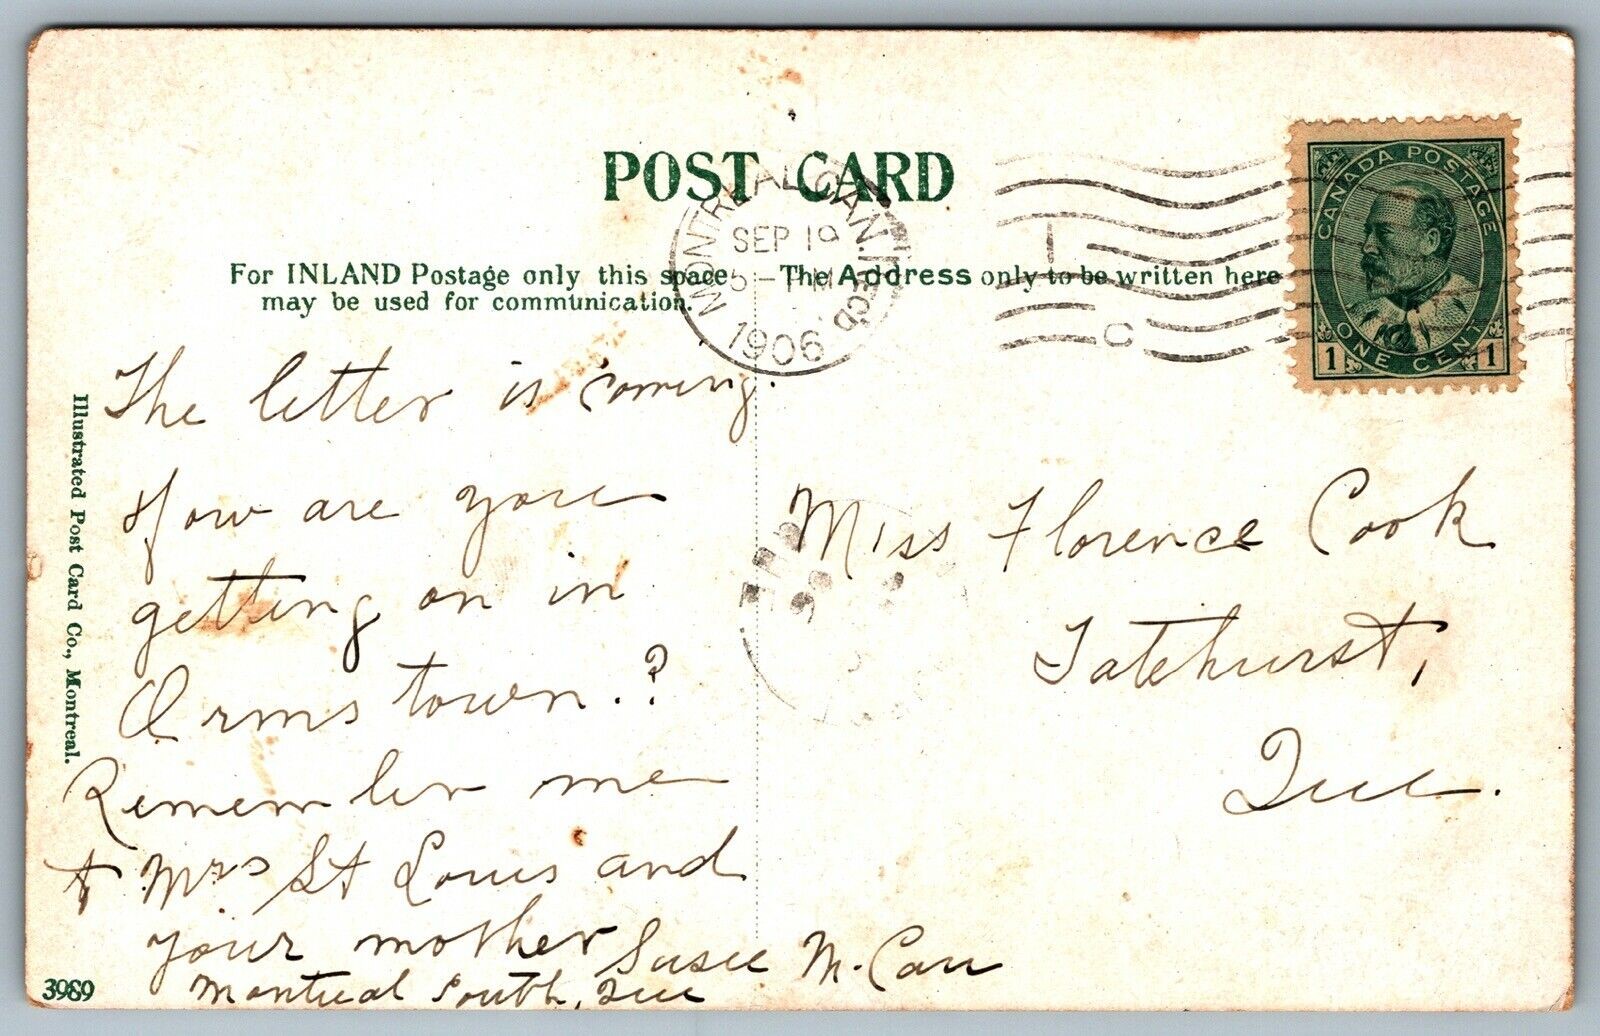 POST CARD
MONTREAL, CAN.
SEP 19
5-
1906
C
CANADA POSTAGE
ONE CENT
1 1
For INLAND Postage only this space
may be used for communication.
The Address only to be written here
Illustrated Post Card Co., Montreal.
The letter is coming.
How are you
getting on in
Ormstown.?
Remember me
to Mrs St Louis and
your mother
Susie M. Carr
Montreal South, Que
Miss Florence Cook
Tatehurst,
Que.
3989